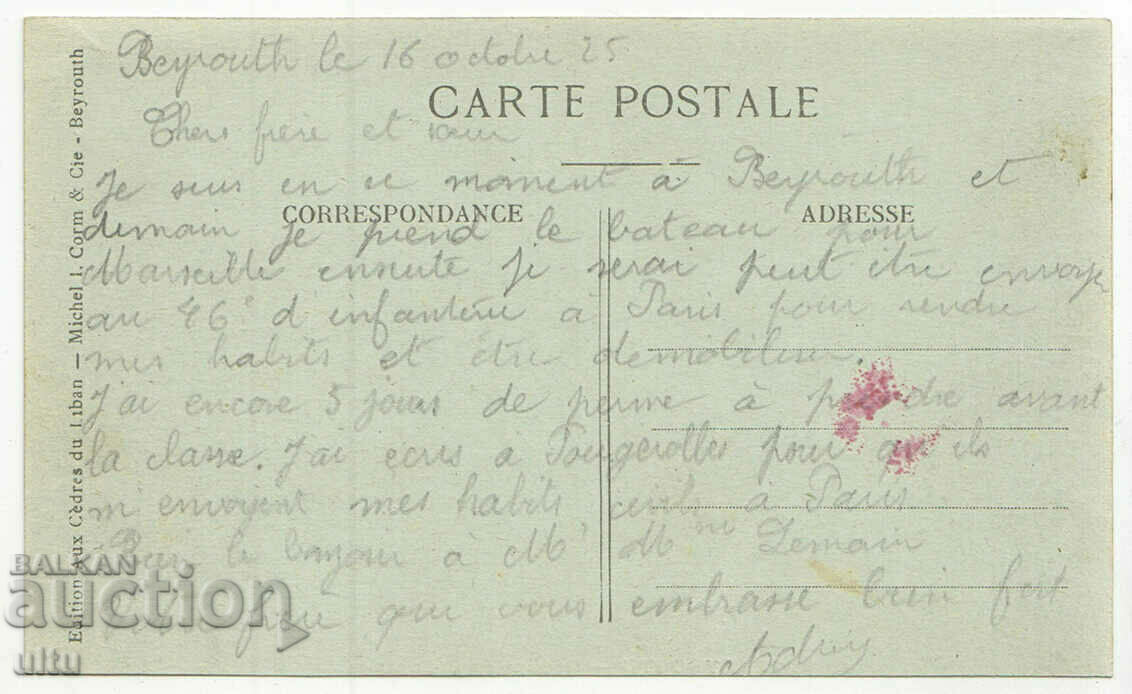 Beyrouth le 16 octobre 25
CARTE POSTALE
Chers frère et sœur
Je suis en ce moment à Beyrouth et
CORRESPONDANCE
ADRESSE
demain je prend le bateau pour
Marseille ensuite je serai peut être envoyé
au 46e d'infanterie à Paris pour rendre
mes habits et être démobiliser.
J'ai encore 5 jours de perme à prendre avant
la classe. J'ai écris a Fougerolles pour qu'ils
m'envoyent mes habits civils à Paris
le bonjour à Mr Mme Demain
frère qui vous embrasse bien fort
Edition Aux Cèdres du Liban — Michel I. Corm & Cie - Beyrouth
BALKAN
auction
ultu